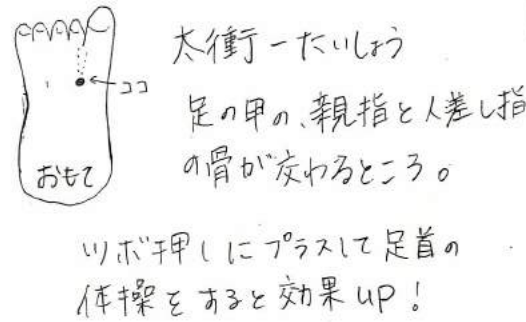 太衝ーたいしょう
ココ
足の甲の、親指と人差し指
の骨が交わるところ。
おもて
ツボ押しにプラスして足首の
体操をすると効果UP!